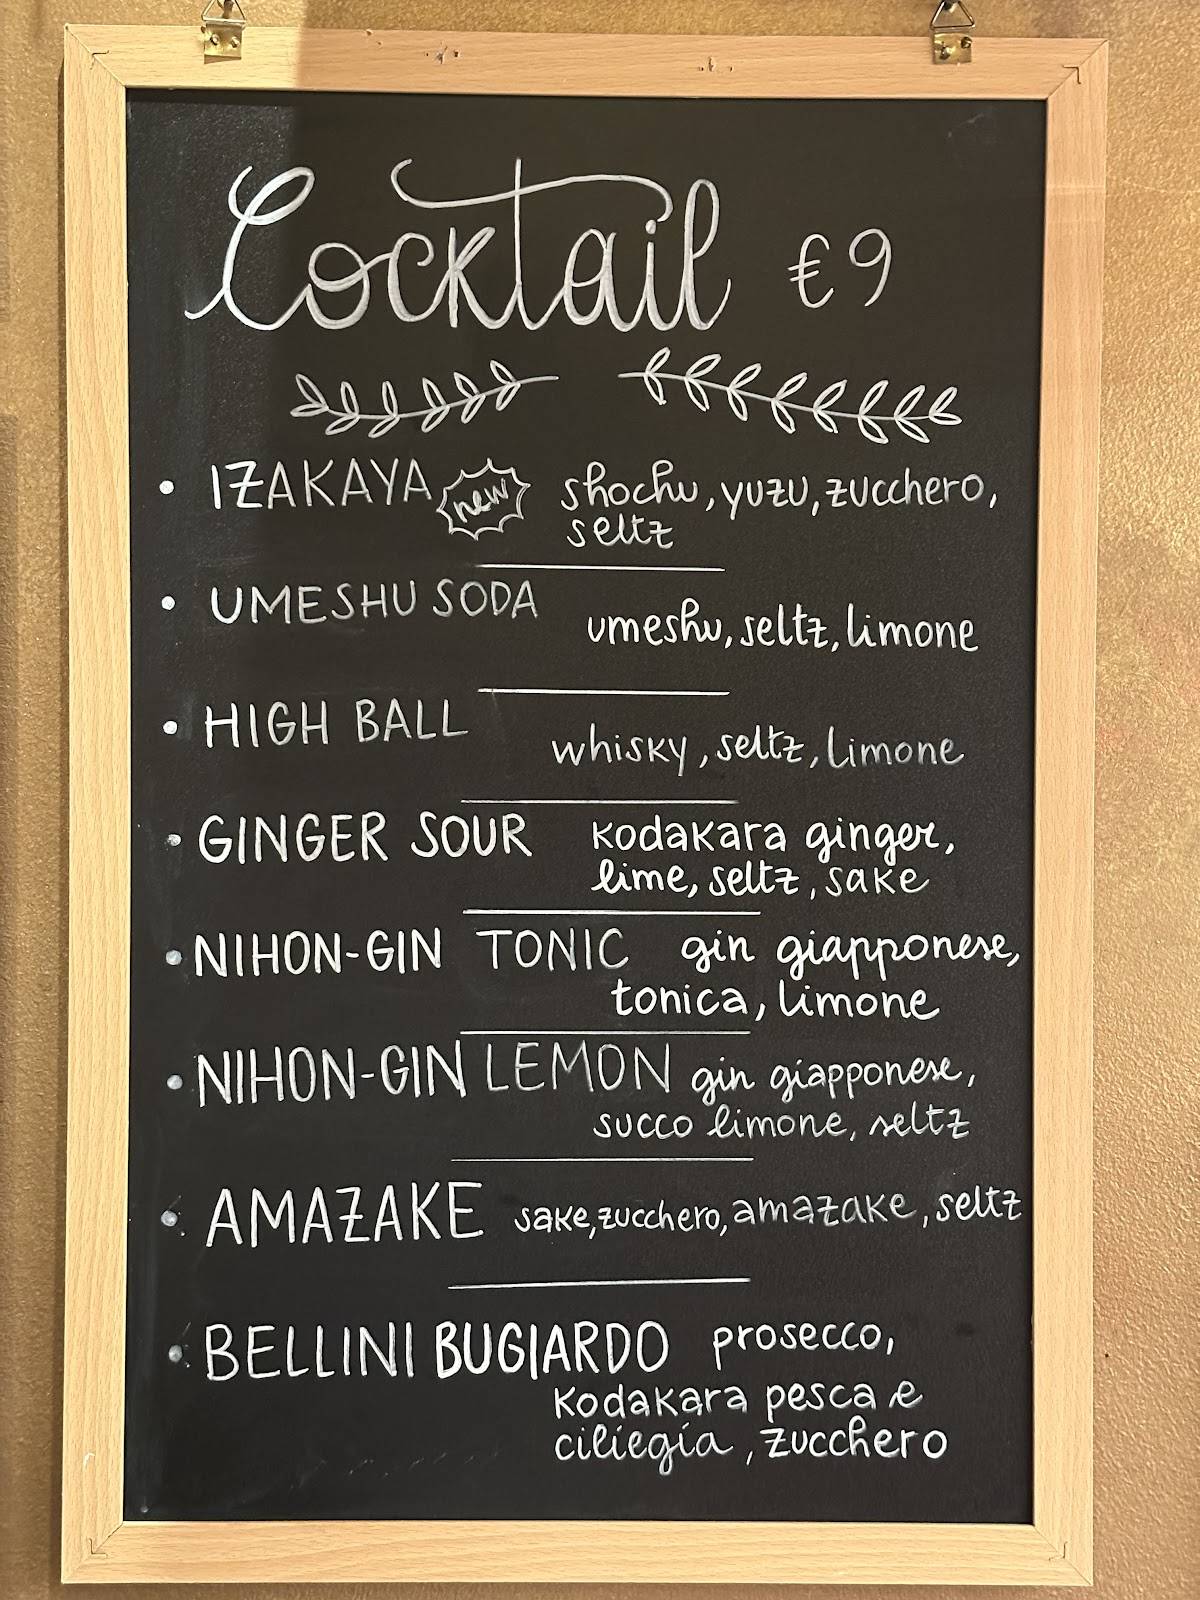 Cocktail €9
• IZAKAYA new shochu, yuzu, zucchero,
seltz
• UMESHU SODA umeshu, seltz, limone
• HIGH BALL whisky, seltz, limone
• GINGER SOUR kodakara ginger,
lime, seltz, sake
• NIHON-GIN TONIC gin giapponese,
tonica, limone
• NIHON-GIN LEMON gin giapponese,
succo limone, seltz
• AMAZAKE sake, zucchero, amazake, seltz
• BELLINI BUGIARDO prosecco,
kodakara pesca e
ciliegia, zucchero